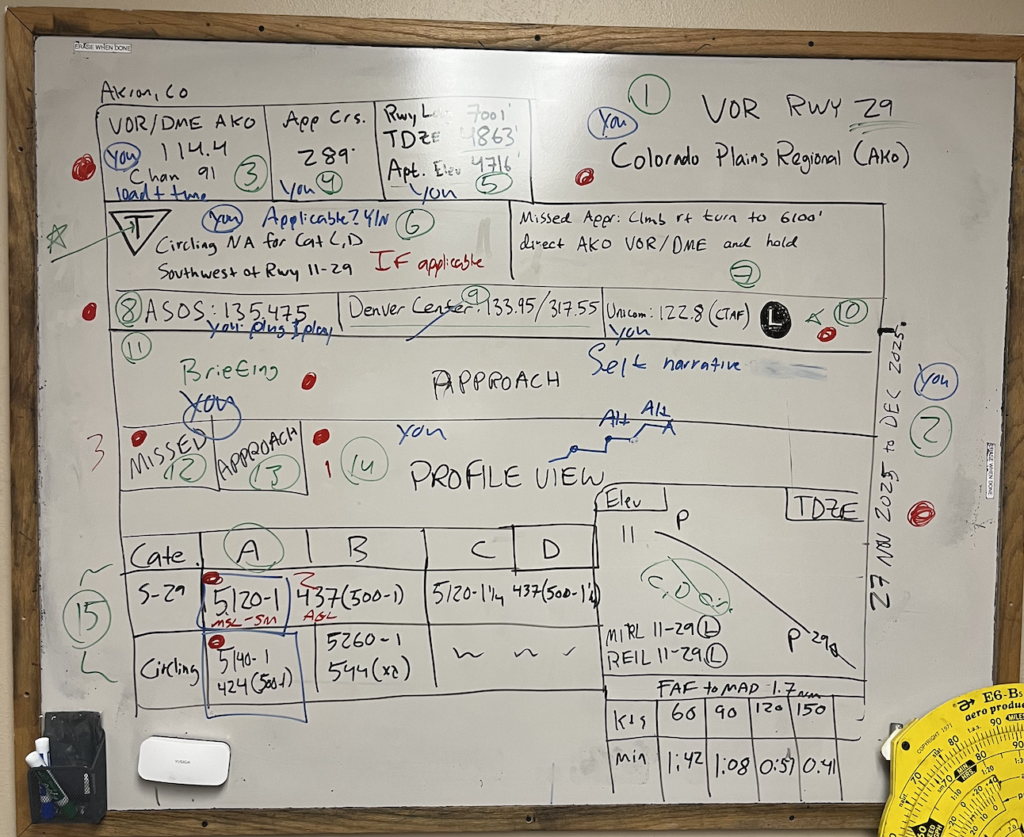 ERASE WHEN DONE
Akron, CO
1
VOR RWY 29
You
Colorado Plains Regional (AKO)
VOR/DME AKO
You 114.4
Chan 91 3
load + tune
App Crs.
289°
You 4
Rwy 7001'
TDZE 4863'
Apt. Elev 4716'
You 5
T
You Applicable? Y/N 6
Circling NA for Cat C,D
Southwest of Rwy 11-29 IF applicable
Missed Appr: Climb rt turn to 6100'
direct AKO VOR/DME and hold
7
8 ASOS: 135.475
you: plug & play
9
Denver Center: 133.95/317.55
Unicom: 122.8 (CTAF) L 10
You
11
Briefing
You
APPROACH
Self narrative
27 NOV 2025 to DEC 2025.
You
2
3
MISSED
12
APPROACH
13
1
14
You
PROFILE VIEW
Alt Alt
Cate. A B C D
15
S-29 5120-1 437(500-1) 5120-1¼ 437(500-1¼)
MSL-SM AGL
Circling 5140-1 5260-1
424(500-1) 544(x2)
Elev
TDZE
11
P
C,D cir.
P 29
MIRL 11-29 L
REIL 11-29 L
FAF to MAD 1.7nm
Kts 60 90 120 150
min 1:42 1:08 0:51 0:41
ERASE WHEN DONE
E6-B
aero produ
COPYRIGHT 1971